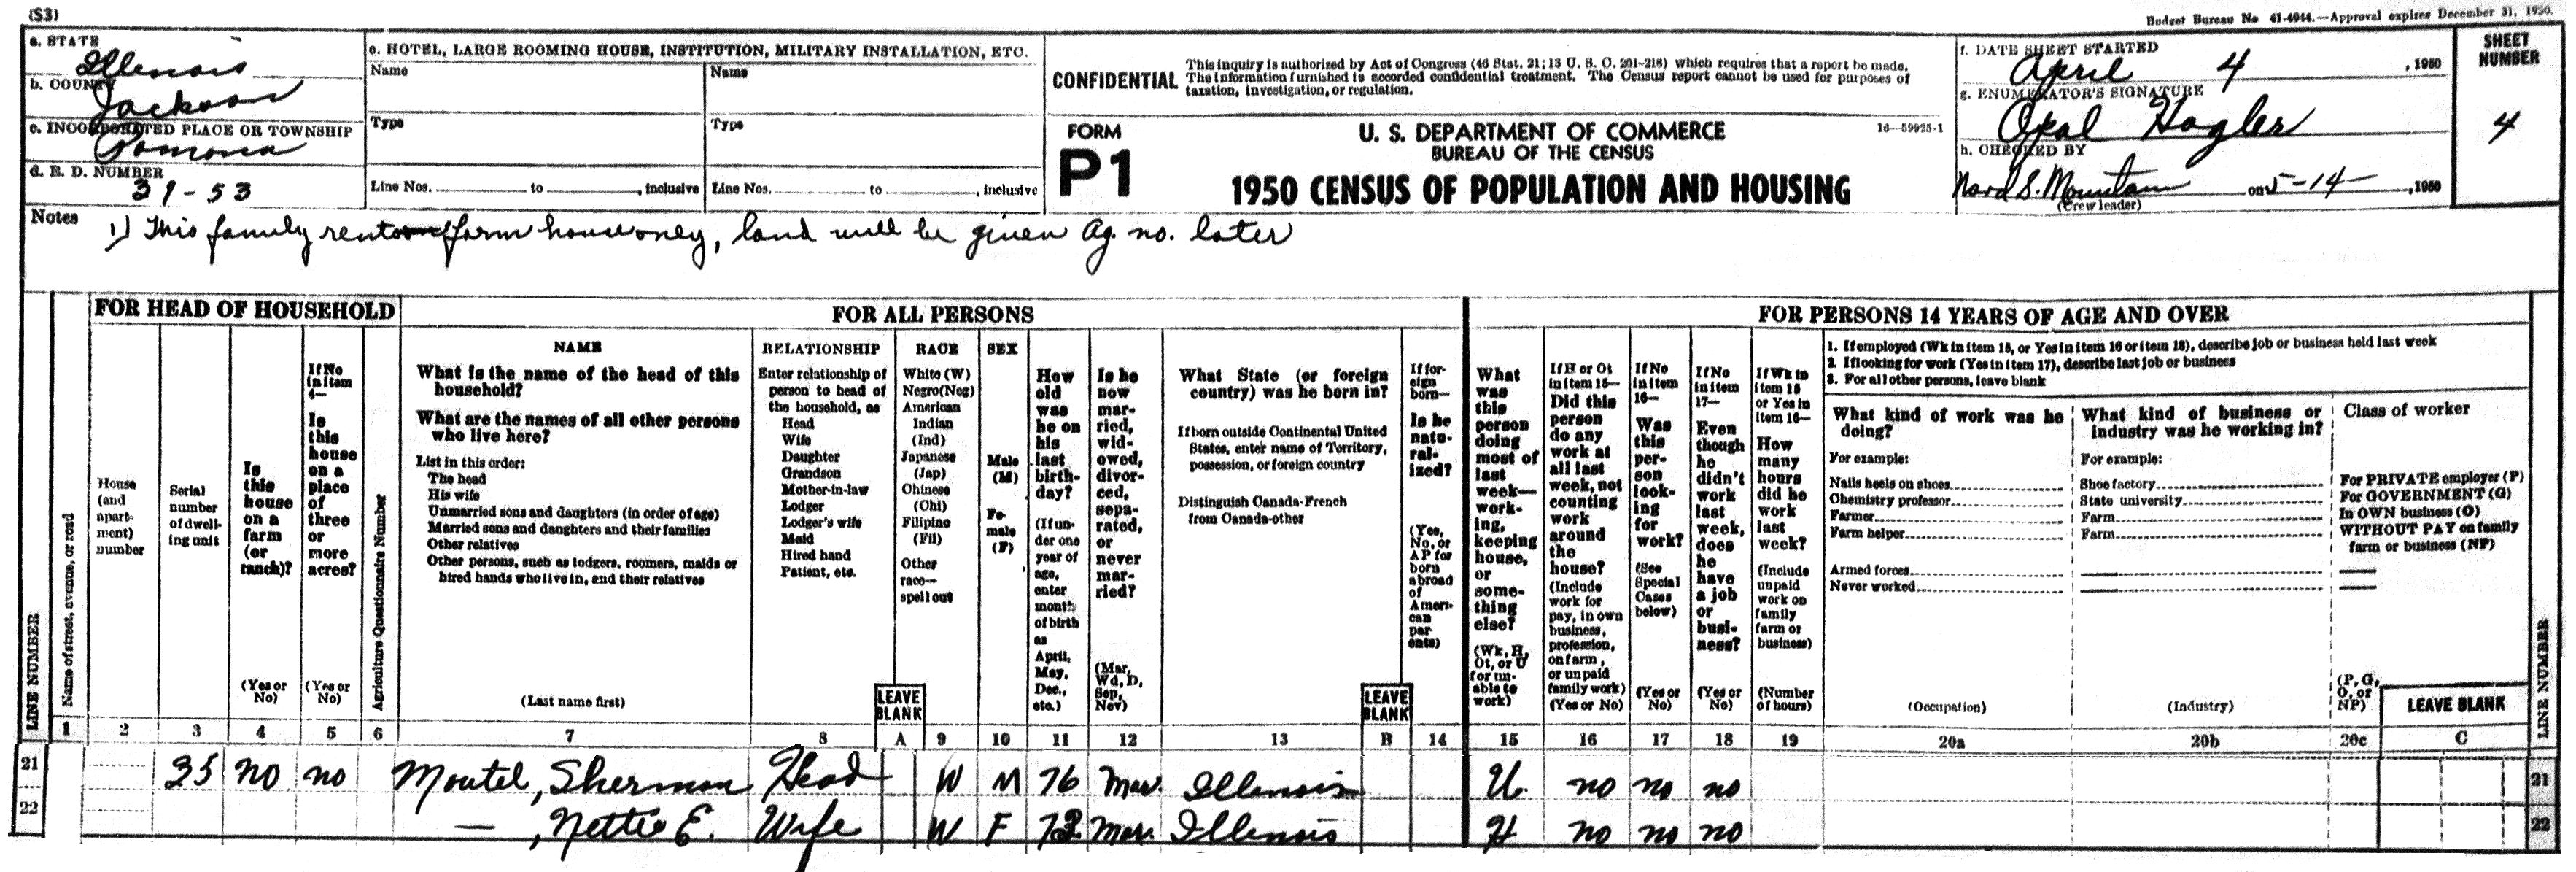 (S3)
Budget Bureau No 41-4944.—Approval expires December 31, 1950.
a. STATE
Illinois
b. COUNTY
Jackson
c. INCORPORATED PLACE OR TOWNSHIP
Pomona
d. E. D. NUMBER
39-53
e. HOTEL, LARGE ROOMING HOUSE, INSTITUTION, MILITARY INSTALLATION, ETC.
Name
Name
Type
Type
Line Nos. to , inclusive
Line Nos. to , inclusive
CONFIDENTIAL
This inquiry is authorized by Act of Congress (46 Stat. 21; 13 U. S. C. 201-218) which requires that a report be made.
The information furnished is accorded confidential treatment. The Census report cannot be used for purposes of
taxation, investigation, or regulation.
FORM
P1
U. S. DEPARTMENT OF COMMERCE
BUREAU OF THE CENSUS
1950 CENSUS OF POPULATION AND HOUSING
16—59925-1
f. DATE SHEET STARTED
April 4 , 1950
g. ENUMERATOR'S SIGNATURE
Opal Hagler
h. CHECKED BY
S. Mountain on 5-14- , 1950
(Crew leader)
SHEET
NUMBER
4
Notes
1) This family rents farm house only, land will be given Ag. no. later
FOR HEAD OF HOUSEHOLD
FOR ALL PERSONS
FOR PERSONS 14 YEARS OF AGE AND OVER
LINE NUMBER
Name of street, avenue, or road
House
(and
apart-
ment)
number
Serial
number
of dwell-
ing unit
Is
this
house
on a
farm
(or
ranch)?
(Yes or
No)
If No
in item
4—
Is
this
house
on a
place
of
three
or
more
acres?
(Yes or
No)
Agriculture Questionnaire Number
NAME
What is the name of the head of this
household?
What are the names of all other persons
who live here?
List in this order:
The head
His wife
Unmarried sons and daughters (in order of age)
Married sons and daughters and their families
Other relatives
Other persons, such as lodgers, roomers, maids or
hired hands who live in, and their relatives
(Last name first)
RELATIONSHIP
Enter relationship of
person to head of
the household, as
Head
Wife
Daughter
Grandson
Mother-in-law
Lodger
Lodger's wife
Maid
Hired hand
Patient, etc.
LEAVE
BLANK
RACE
White (W)
Negro(Neg)
American
Indian
(Ind)
Japanese
(Jap)
Chinese
(Chi)
Filipino
(Fil)
Other
race—
spell out
SEX
Male
(M)
Fe-
male
(F)
How
old
was
he on
his
last
birth-
day?
(If un-
der one
year of
age,
enter
month
of birth
as
April,
May,
Dec.,
etc.)
Is he
now
mar-
ried,
wid-
owed,
divor-
ced,
sepa-
rated,
or
never
mar-
ried?
(Mar,
Wd, D,
Sep,
Nev)
What State (or foreign
country) was he born in?
If born outside Continental United
States, enter name of Territory,
possession, or foreign country
Distinguish Canada-French
from Canada-other
LEAVE
BLANK
If for-
eign
born—
Is he
natu-
ral-
ized?
(Yes,
No, or
AP for
born
abroad
of
Ameri-
can
par-
ents)
What
was
this
person
doing
most of
last
week—
work-
ing,
keeping
house,
or
some-
thing
else?
(Wk, H,
Ot, or U
for un-
able to
work)
If H or Ot
in item 15—
Did this
person
do any
work at
all last
week, not
counting
work
around
the
house?
(Include
work for
pay, in own
business,
profession,
on farm,
or unpaid
family work)
(Yes or No)
If No
in item
16—
Was
this
per-
son
look-
ing
for
work?
(See
Special
Cases
below)
(Yes or
No)
If No
in item
17—
Even
though
he
didn't
work
last
week,
does
he
have
a job
or
busi-
ness?
(Yes or
No)
If Wk in
item 15
or Yes in
item 16—
How
many
hours
did he
work
last
week?
(Include
unpaid
work on
family
farm or
business)
(Number
of hours)
1. If employed (Wk in item 15, or Yes in item 16 or item 18), describe job or business held last week
2. If looking for work (Yes in item 17), describe last job or business
3. For all other persons, leave blank
What kind of work was he
doing?
For example:
Nails heels on shoes
Chemistry professor
Farmer
Farm helper
Armed forces
Never worked
(Occupation)
What kind of business or
industry was he working in?
For example:
Shoe factory
State university
Farm
Farm
(Industry)
Class of worker
For PRIVATE employer (P)
For GOVERNMENT (G)
In OWN business (O)
WITHOUT PAY on family
farm or business (NP)
(P, G,
O, or
NP)
LEAVE BLANK
LINE NUMBER
1 2 3 4 5 6 7 8 A 9 10 11 12 13 B 14 15 16 17 18 19 20a 20b 20c C
21 35 no no Moutel, Sherman Head W M 76 Mar. Illinois U. no no no 21
22 —, Nettie E. Wife W F Mar. Illinois H no no no 22